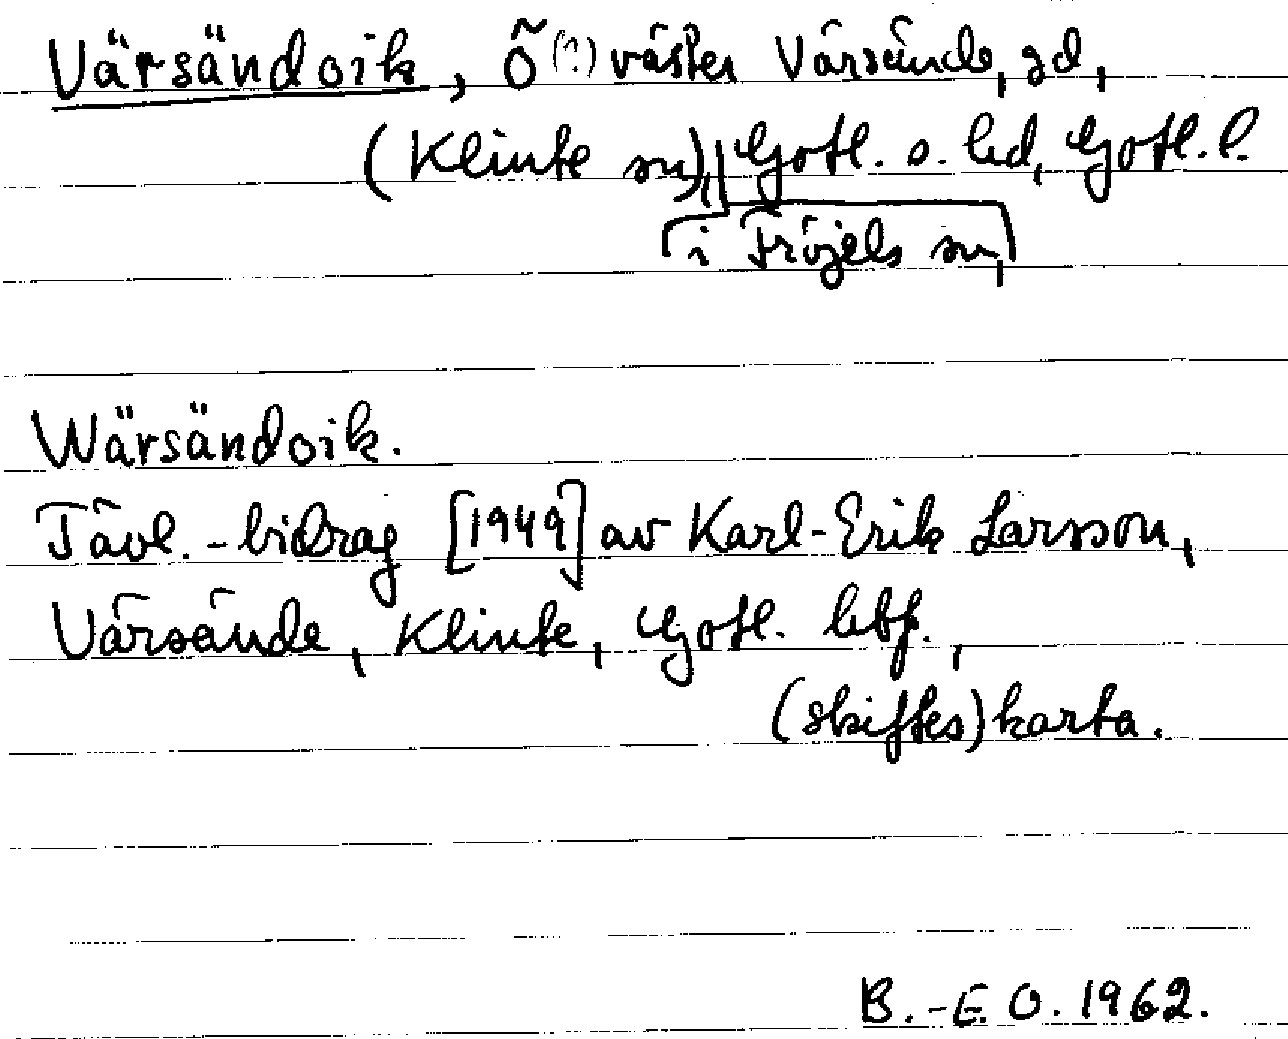 Värsändoik, ö(?) väster Värsände, gd,
(Klinte sn), Gotl. s. hd, Gotl. l.
i Fröjels sn,
Wärsändoik.
Tävl.-bidrag [1949] av Karl-Erik Larsson,
Värsände, Klinte, Gotl. hbf.,
(skiftes)karta.
B.-E. O. 1962.